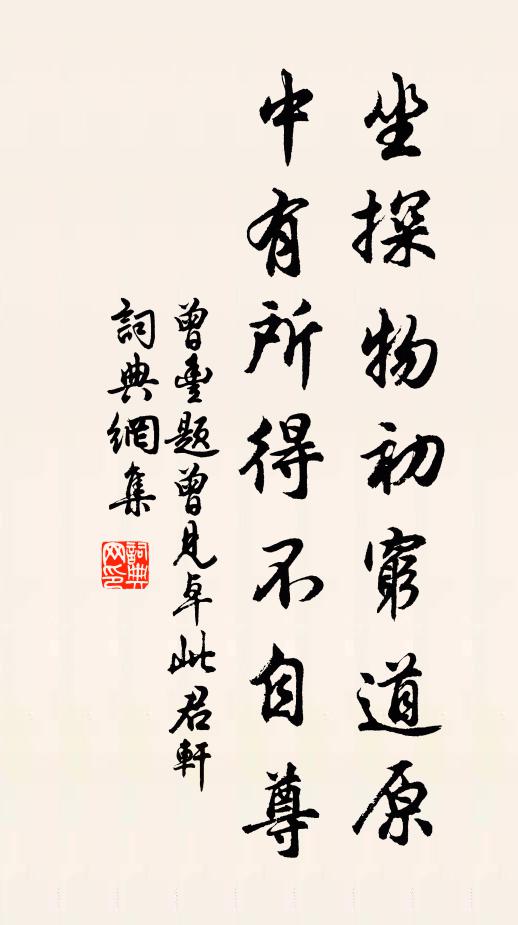 坐探物初窮道原
中有所得不自尊
曾豐題曾見卓此君軒
詞典網集
詞典网印